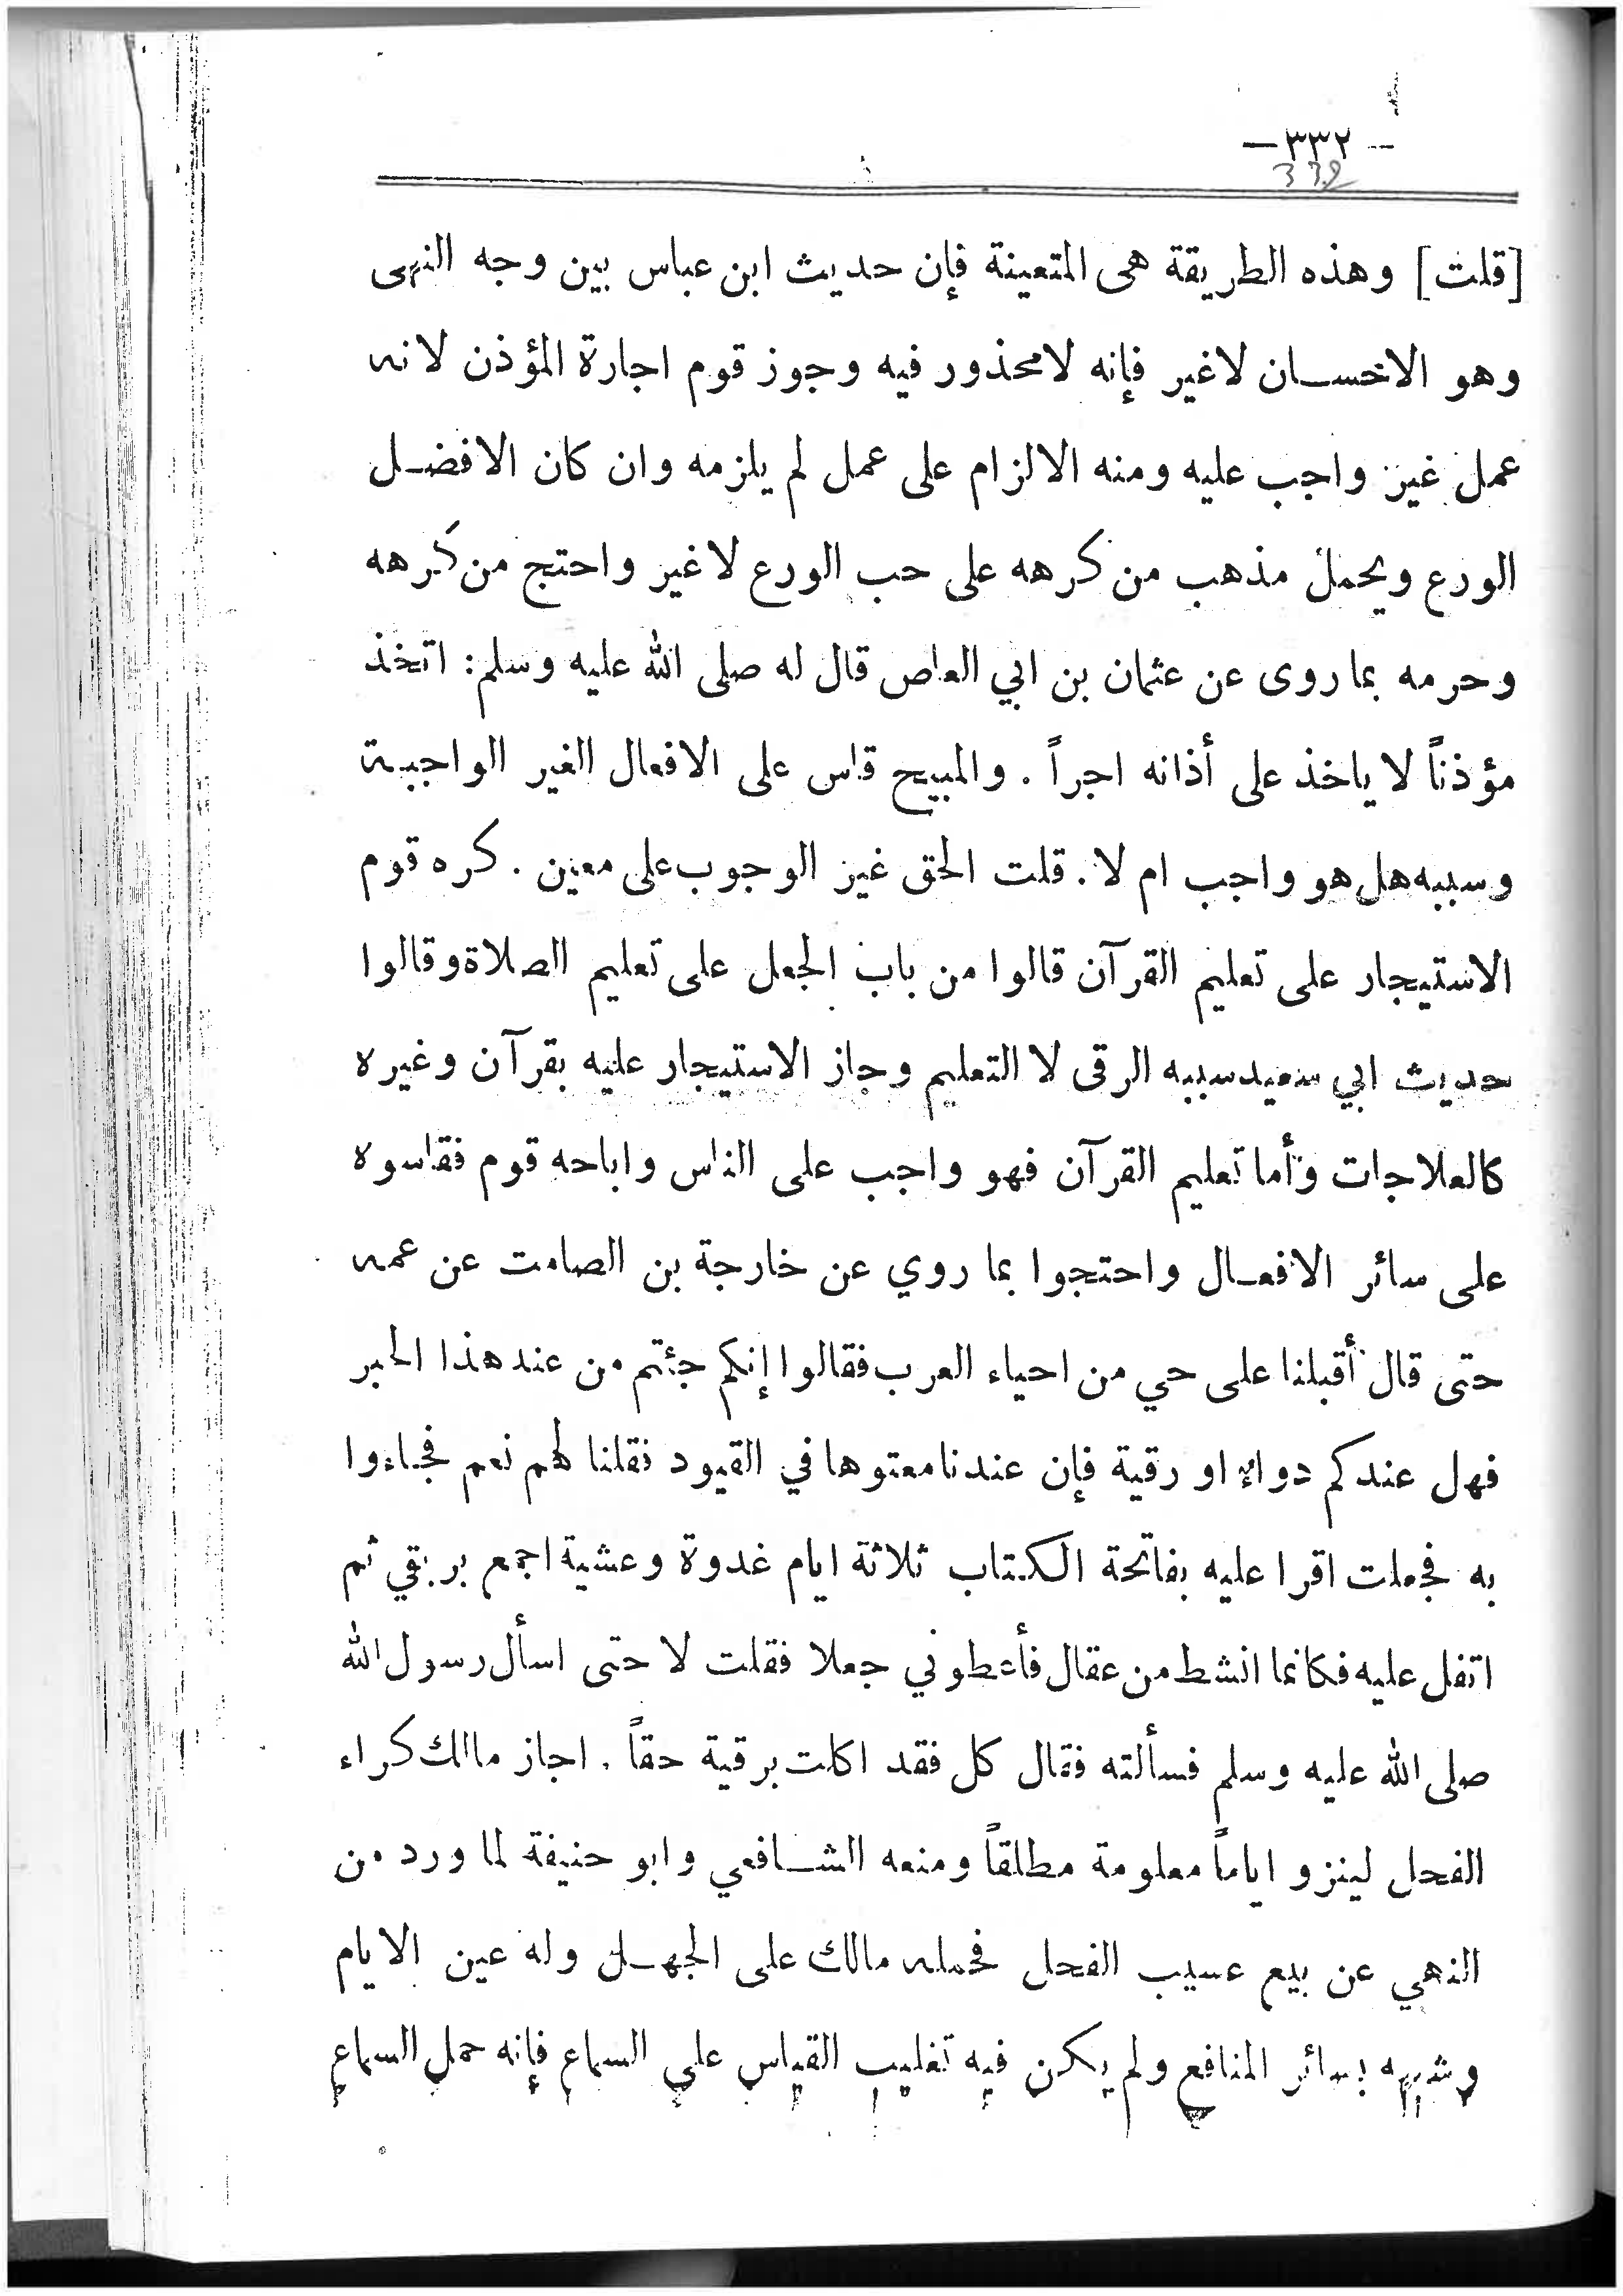 - ٣٣٢ -
332
[قلت] وهذه الطريقة هى المتعينة فإن حديث ابن عباس بين وجه النهى
وهو الاخسان لاغير فإنه لامحذور فيه وجوز قوم اجارة المؤذن لانه
عمل غير واجب عليه ومنه الالزام على عمل لم يلزمه وان كان الافضل
الورع ويحمل مذهب من كرهه على حب الورع لاغير واحتج من كرهه
وحرمه بما روى عن عثمان بن ابي العاص قال له صلى الله عليه وسلم: اتخذ
مؤذناً لا ياخذ على أذانه اجراً . والمبيح قاس على الافعال الغير الواجبة
وسببه هل هو واجب ام لا. قلت الحق غير الوجوب على معين . كره قوم
الاستيجار على تعليم القرآن قالوا من باب الجعل على تعليم الصلاة وقالوا
حديث ابي سعيد سببه الرقى لا التعليم وجاز الاستيجار عليه بقرآن وغيره
كالعلاجات وأما تعليم القرآن فهو واجب على الناس واباحه قوم فقاسوه
على سائر الافعال واحتجوا بما روي عن خارجة بن الصامت عن عمه
حتى قال أقبلنا على حي من احياء العرب فقالوا إنكم جئتم من عند هذا الحبر
فهل عندكم دواء او رقية فإن عندنا معتوها في القيود فقلنا لهم نعم فجاءوا
به فجعلت اقرا عليه بفاتحة الكتاب ثلاثة ايام غدوة وعشية اجمع بريقي ثم
اتفل عليه فكانما انشط من عقال فأعطوني جعلا فقلت لا حتى اسأل رسول الله
صلى الله عليه وسلم فسألته فقال كل فقد اكلت برقية حقاً . اجاز مالك كراء
الفحل لينزو اياماً معلومة مطلقاً ومنعه الشافعي وابو حنيفة لما ورد من
النهي عن بيع عسيب الفحل فحمله مالك على الجهل وله عين الايام
وشبهه بسائر المنافع ولم يكن فيه تغليب القياس على السماع فإنه حمل السماع